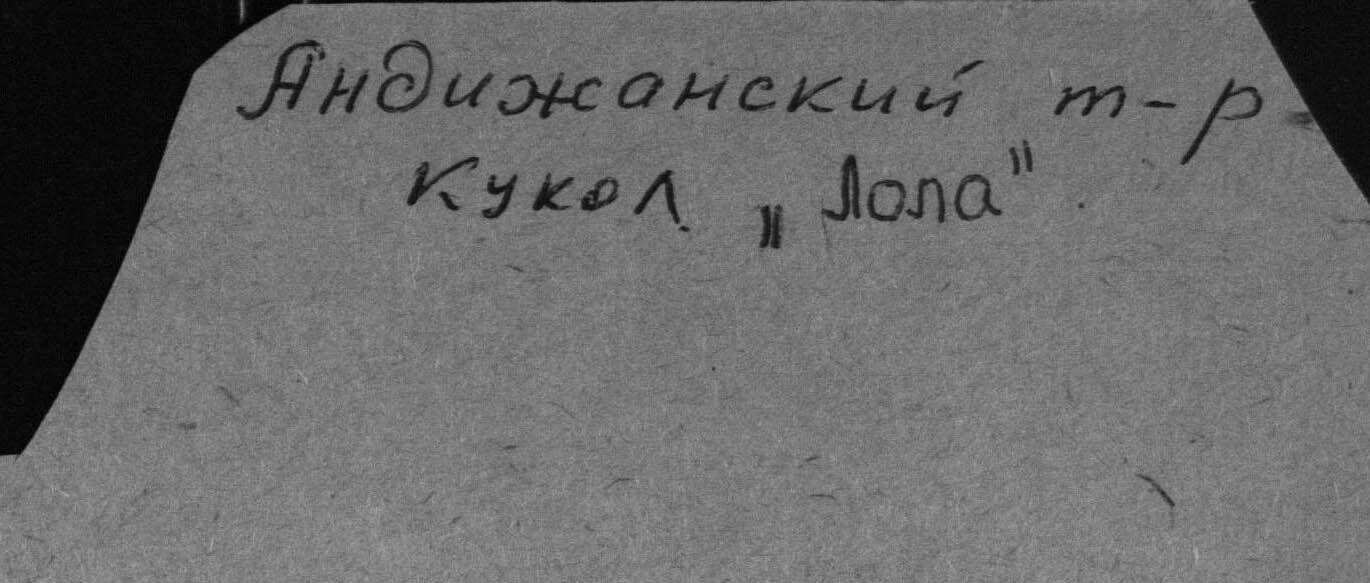 Андижанский т-р
Кукол „Лола"